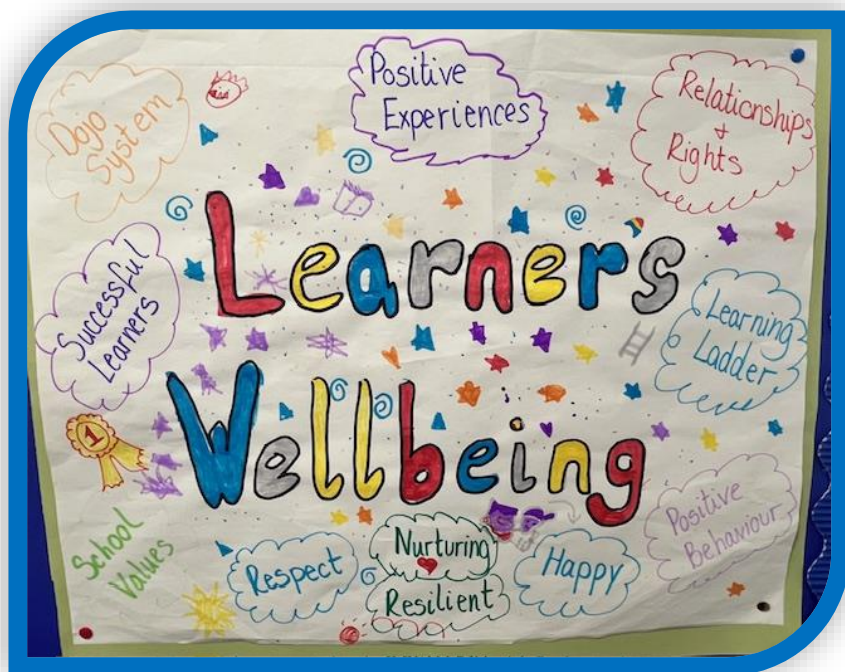 Dojo
System
Positive
Experiences
Relationships
+
Rights
Learners
Successful
Learners
Learning
Ladder
Wellbeing
1
School
Values
Respect
Nurturing
Resilient
Happy
Positive
Behaviour